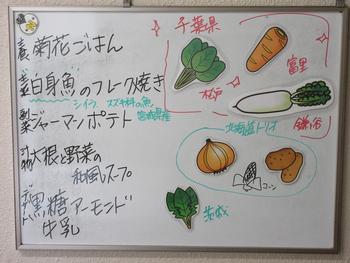 主食 菊花ごはん
主菜 白身魚のフレーク焼き
シイラ スズキ科の魚
宮城県産
副菜 ジャーマンポテト
汁物 大根と野菜の
和風スープ
デザート 黒糖アーモンド
牛乳
千葉県
富里
松戸
鎌ヶ谷
北海道トリオ
コーン
茨城